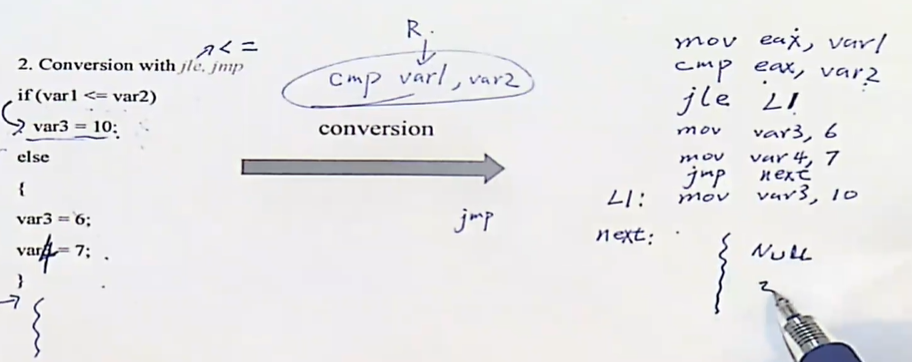 <=
2. Conversion with jle, jmp
if (var1 <= var2)
var3 = 10;
else
{
var3 = 6;
var4 = 7;
}
R.
cmp var1, var2
conversion
jmp
mov eax, var1
cmp eax, var2
jle L1
mov var3, 6
mov var4, 7
jmp next
L1: mov var3, 10
next:
NULL